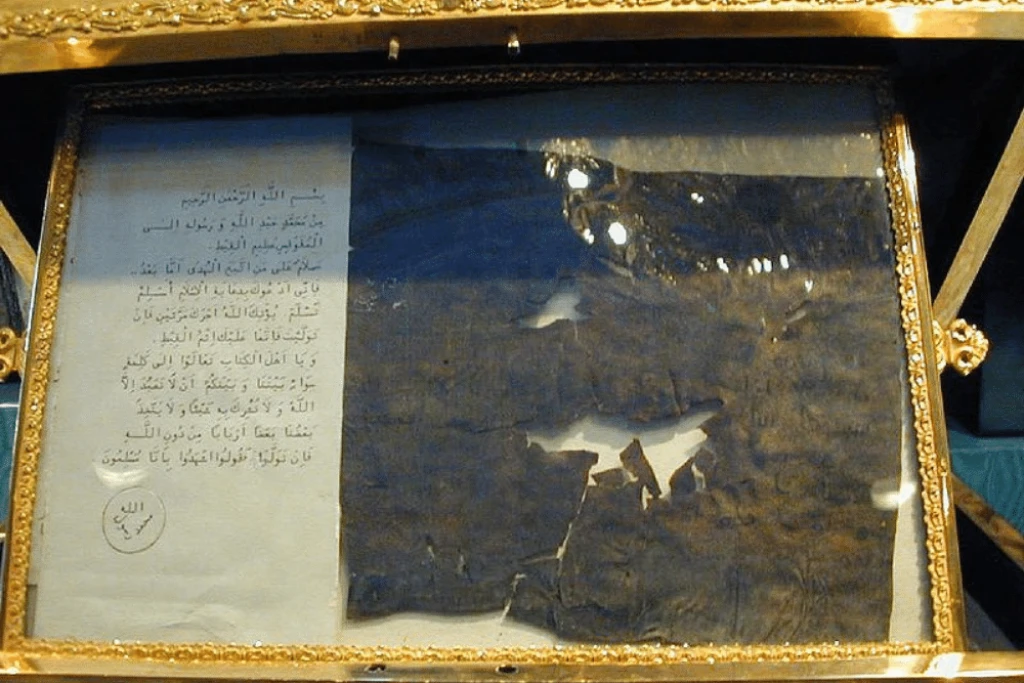 بِسْمِ اللَّهِ الرَّحْمٰنِ الرَّحِيمِ
مِنْ مُحَمَّدٍ عَبْدِ اللَّهِ وَ رَسُولِهِ إِلَى
الْمُقَوْقِسِ عَظِيمِ الْقِبْطِ.
سَلَامٌ عَلَى مَنِ اتَّبَعَ الْهُدَى أَمَّا بَعْدُ..
فَإِنِّي أَدْعُوكَ بِدِعَايَةِ الْإِسْلَامِ أَسْلِمْ
تَسْلَمْ يُؤْتِكَ اللَّهُ أَجْرَكَ مَرَّتَيْنِ فَإِنْ
تَوَلَّيْتَ فَإِنَّمَا عَلَيْكَ إِثْمُ الْقِبْطِ.
وَ يَا أَهْلَ الْكِتَابِ تَعَالَوْا إِلَى كَلِمَةٍ
سَوَاءٍ بَيْنَنَا وَ بَيْنَكُمْ أَنْ لَا نَعْبُدَ إِلَّا
اللَّهَ وَ لَا نُشْرِكَ بِهِ شَيْئًا وَ لَا يَتَّخِذَ
بَعْضُنَا بَعْضًا أَرْبَابًا مِنْ دُونِ اللَّهِ
فَإِنْ تَوَلَّوْا فَقُولُوا اشْهَدُوا بِأَنَّا مُسْلِمُونَ
اللَّه
محمد